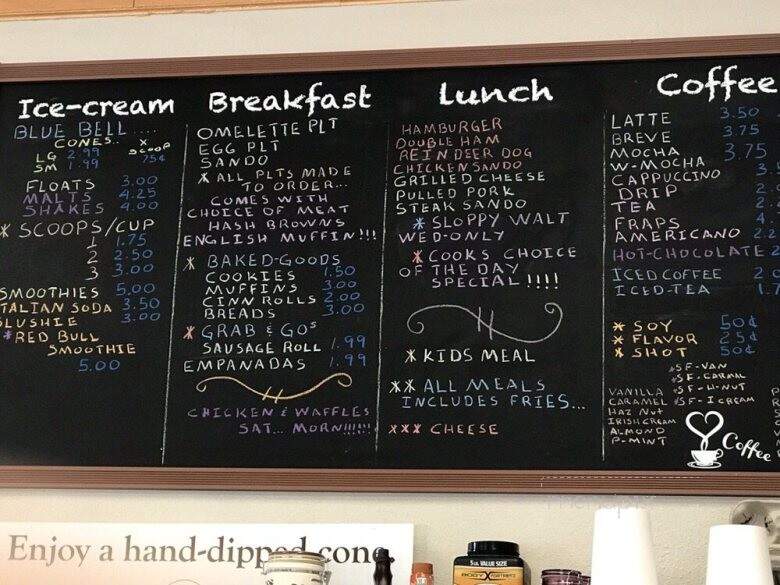 Ice-cream
BLUE BELL....
CONES..
LG 2.99
SM 1.99
X SCOOP
75¢
FLOATS 3.00
MALTS 4.25
SHAKES 4.00
* SCOOPS/CUP
1 1.75
2 2.50
3 3.00
SMOOTHIES 5.00
ITALIAN SODA 3.50
SLUSHIE 3.00
*RED BULL
SMOOTHIE
5.00
Breakfast
OMELETTE PLT
EGG PLT
SANDO
* ALL PLTS MADE
TO ORDER...
COMES WITH
CHOICE OF MEAT
HASH BROWNS
ENGLISH MUFFIN!!!
* BAKED-GOODS
COOKIES 1.50
MUFFINS 3.00
CINN ROLLS 2.00
BREADS 3.00
* GRAB & GOS
SAUSAGE ROLL 1.99
EMPANADAS 1.99
CHICKEN & WAFFLES
SAT... MORN!!!!!!
Lunch
HAMBURGER
DOUBLE HAM
REINDEER DOG
CHICKEN SANDO
GRILLED CHEESE
PULLED PORK
STEAK SANDO
* SLOPPY WALT
WED-ONLY
* COOKS CHOICE
OF THE DAY
SPECIAL !!!!
* KIDS MEAL
** ALL MEALS
INCLUDES FRIES...
*** CHEESE
Coffee
LATTE 3.50
BREVE 3.75
MOCHA 3.75
W-MOCHA
CAPPUCCINO
DRIP
TEA
FRAPS
AMERICANO
HOT-CHOCOLATE
ICED COFFEE
ICED-TEA
* SOY 50¢
* FLAVOR 25¢
* SHOT 50¢
*SF-VAN
*SF-CARML
*SF-H-NUT
*SF-I CREAM
VANILLA
CARAMEL
HAZ NUT
IRISH CREAM
ALMOND
P-MINT
Coffee
Enjoy a hand-dipped cone.
5 LB. VALUE SIZE
BODY FORTRESS